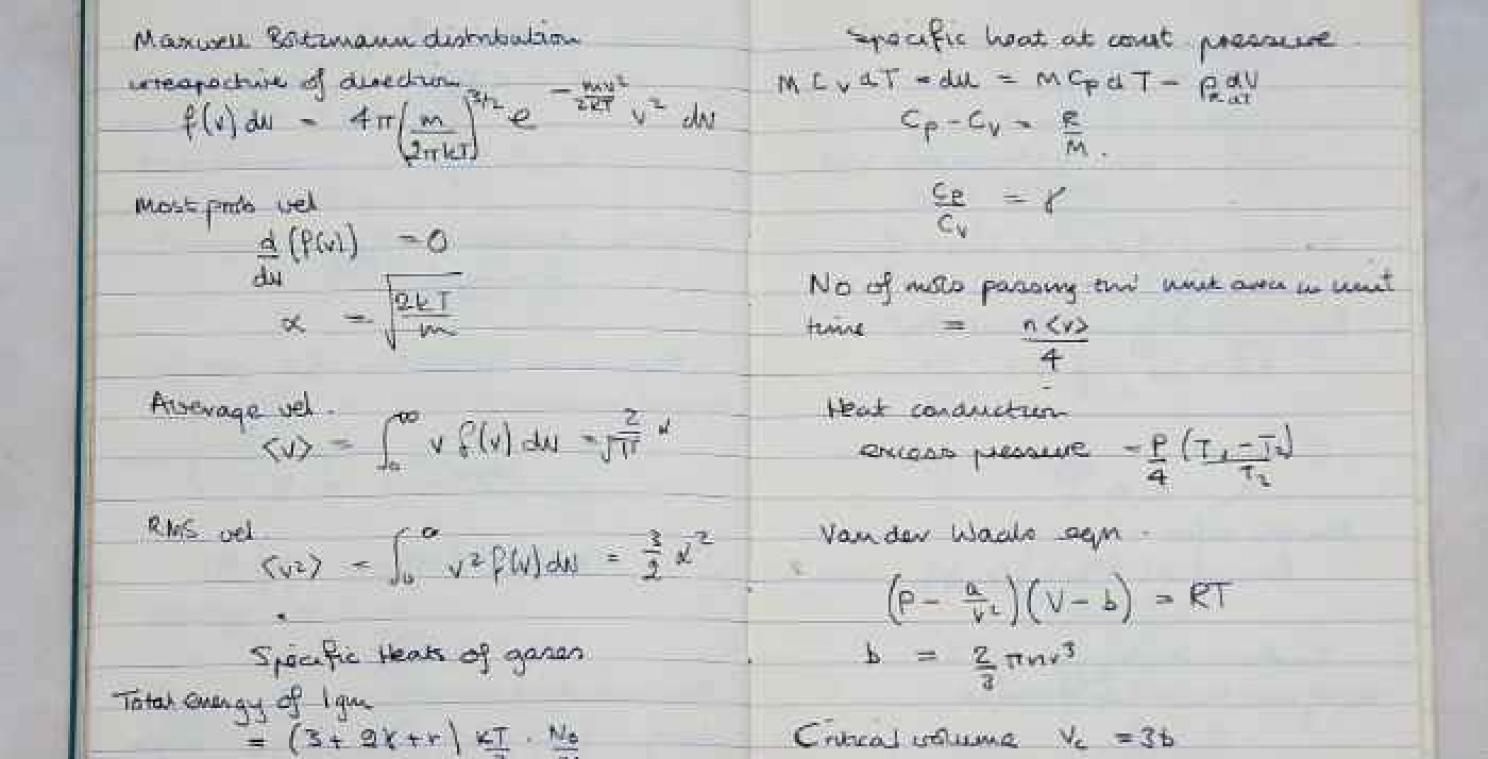 Maxwell Boltzmann distribution
irrespective of direction
f(v) dv = 4π (m/2πkT)^3/2 e^-mv²/2kT v² dv
Most prob vel
d/dv (f(v)) = 0
α = √(2kT/m)
Average vel.
<v> = ∫₀^∞ v f(v) dv = 2/√π α
RMS vel
<v²> = ∫₀^∞ v² f(v) dv = 3/2 α²
Specific Heats of gases
Total energy of 1gm
= (3 + 2γ + r) kT . No
Specific heat at const pressure
M Cv dT = du = M Cp dT - p dV/dT
Cp - Cv = R/M.
Cp/Cv = γ
No of mols passing thro' unit area in unit
time = n<v>/4
Heat conduction
excess pressure = P/4 (T₁ - T₂)/T₂
Van der Waals eqn.
(P - a/V²)(V - b) = RT
b = 2/3 πnr³
Critical volume Vc = 3b